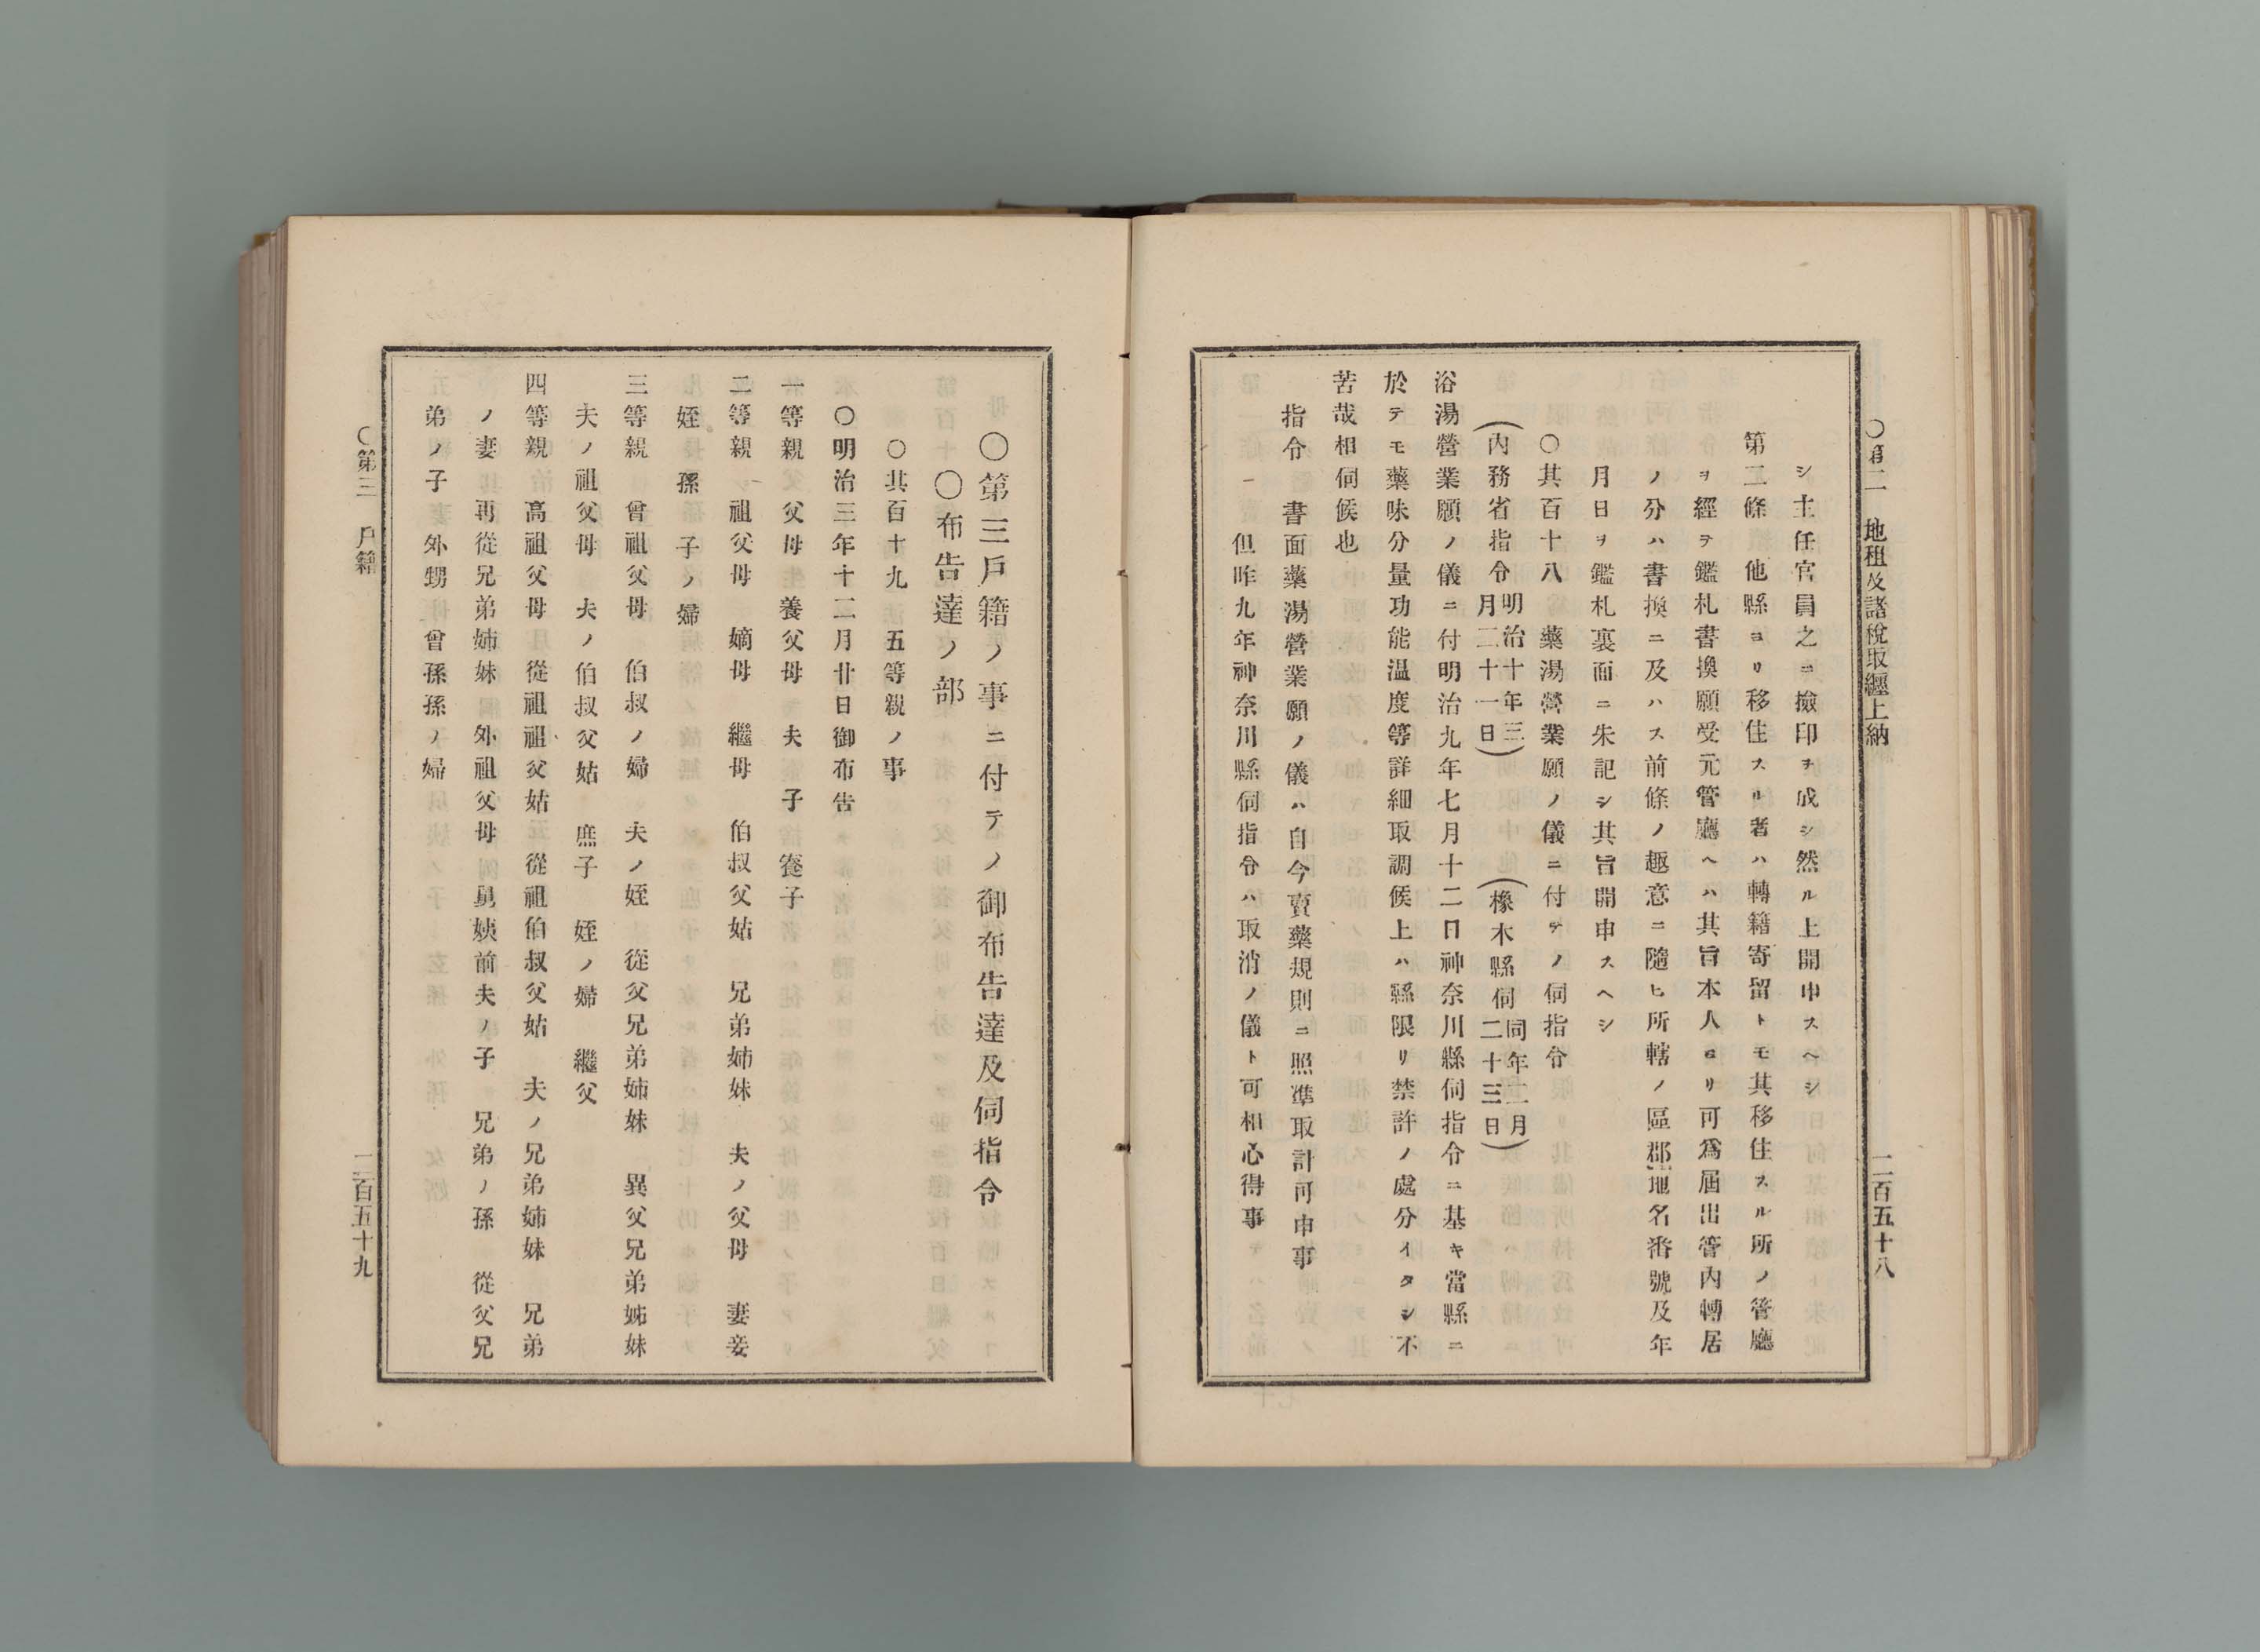 〇第二　地租及諸稅取纒上納　二百五十八
シ主任官員之ニ撿印ヲ成シ然ル上開申スヘシ
第二條　他縣ヨリ移住スル者ハ轉籍寄留トモ其移住スル所ノ管廳
ヲ經テ鑑札書換願受元管廳ヘハ其旨本人ヨリ可爲屆出管內轉居
ノ分ハ書換ニ及ハス前條ノ趣意ニ隨ヒ所轄ノ區郡地名番號及年
月日ヲ鑑札裏面ニ朱記シ其旨開申スヘシ
〇其百十八　藥湯營業願ノ儀ニ付テノ伺指令
（內務省指令明治十年三月二十一日）　（橡木縣伺同年二月二十三日）
浴湯營業願ノ儀ニ付明治九年七月十二日神奈川縣伺指令ニ基キ當縣ニ
於テモ藥味分量功能温度等詳細取調候上ハ縣限リ禁許ノ處分イタシ不
苦哉相伺候也
指令　書面藥湯營業願ノ儀ハ自今賣藥規則ニ照準取計可申事
但昨九年神奈川縣伺指令ハ取消ノ儀ト可相心得事
〇第三戶籍ノ事ニ付テノ御布告達及伺指令
〇布告達ノ部
〇其百十九　五等親ノ事
〇明治三年十二月廿日御布告
一等親　父母　養父母　夫　子　養子
二等親　祖父母　嫡母　繼母　伯叔父姑　兄弟姉妹　夫ノ父母　妻妾
姪　孫　子ノ婦
三等親　曾祖父母　伯叔ノ婦　夫ノ姪　從父兄弟姉妹　異父兄弟姊妹
夫ノ祖父母　夫ノ伯叔父姑　庶子　姪ノ婦　繼父
四等親　高祖父母　從祖祖父姑　從祖伯叔父姑　夫ノ兄弟姉妹　兄弟
ノ妻　再從兄弟姉妹　外祖父母　舅姨前夫ノ子　兄弟ノ孫　從父兄
弟ノ子　妻外甥　曾孫孫ノ婦
〇第三　戶籍　二百五十九